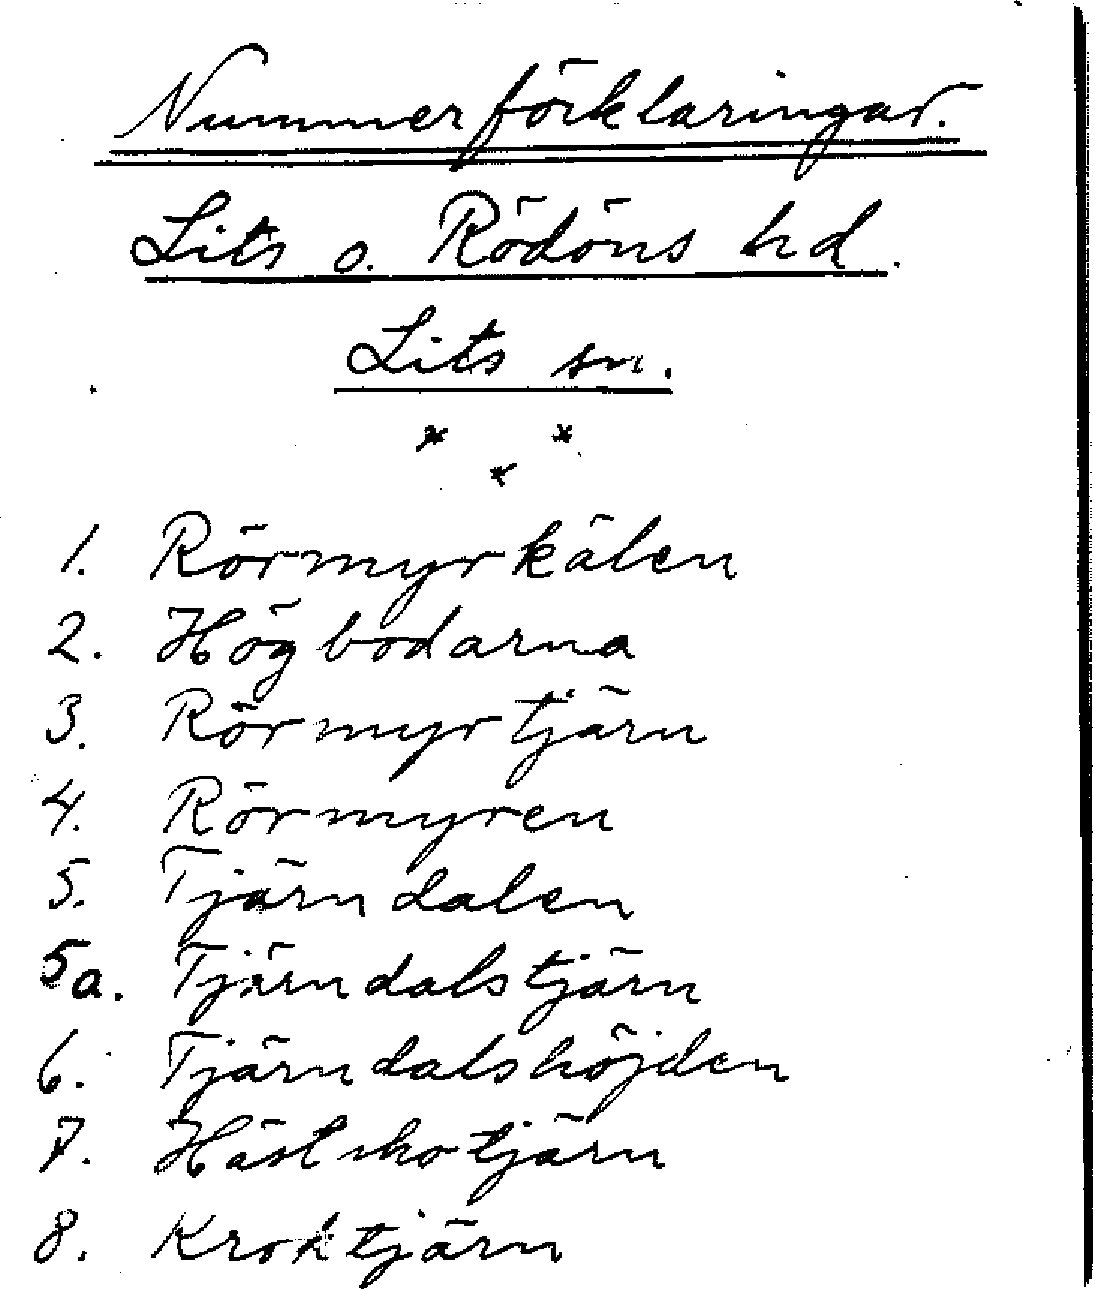 Nummerförklaringar.
Lits o. Rödöns hd.
Lits sn.
* *
*
1. Rörmyrkälen
2. Högbodarna
3. Rörmyrtjärn
4. Rörmyren
5. Tjärndalen
5a. Tjärndalstjärn
6. Tjärndalshöjden
7. Hästskotjärn
8. Kroktjärn